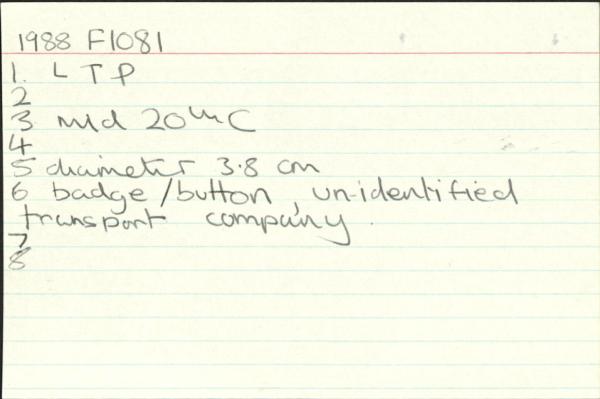 1988 F1081
1. L T P
2
3 mid 20th C
4
5 diameter 3.8 cm
6 badge/button, un-identified
transport company.
7
8